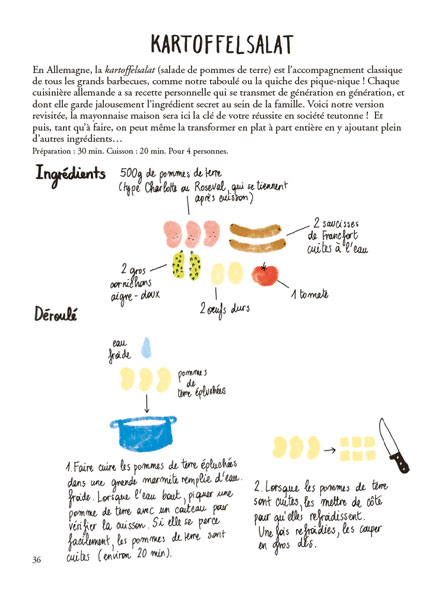 KARTOFFELSALAT
En Allemagne, la kartoffelsalat (salade de pommes de terre) est l'accompagnement classique
de tous les grands barbecues, comme notre taboulé ou la quiche des pique-nique ! Chaque
cuisinière allemande a sa recette personnelle qui se transmet de génération en génération, et
dont elle garde jalousement l'ingrédient secret au sein de la famille. Voici notre version
revisitée, la mayonnaise maison sera ici la clé de votre réussite en société teutonne ! Et
puis, tant qu'à faire, on peut même la transformer en plat à part entière en y ajoutant plein
d'autres ingrédients…
Préparation : 30 min. Cuisson : 20 min. Pour 4 personnes.
Ingrédients
500g de pommes de terre
(type Charlotte ou Roseval, qui se tiennent
après cuisson)
2 saucisses
de Francfort
cuites à l'eau
2 gros
cornichons
aigre-doux
2 œufs durs
1 tomate
Déroulé
eau
froide
pommes
de
terre épluchées
1. Faire cuire les pommes de terre épluchées
dans une grande marmite remplie d'eau
froide. Lorsque l'eau bout, piquer une
pomme de terre avec un couteau pour
vérifier la cuisson. Si elle se perce
facilement, les pommes de terre sont
cuites (environ 20 min).
2. Lorsque les pommes de terre
sont cuites, les mettre de côté
pour qu'elles refroidissent.
Une fois refroidies, les couper
en gros dés.
36